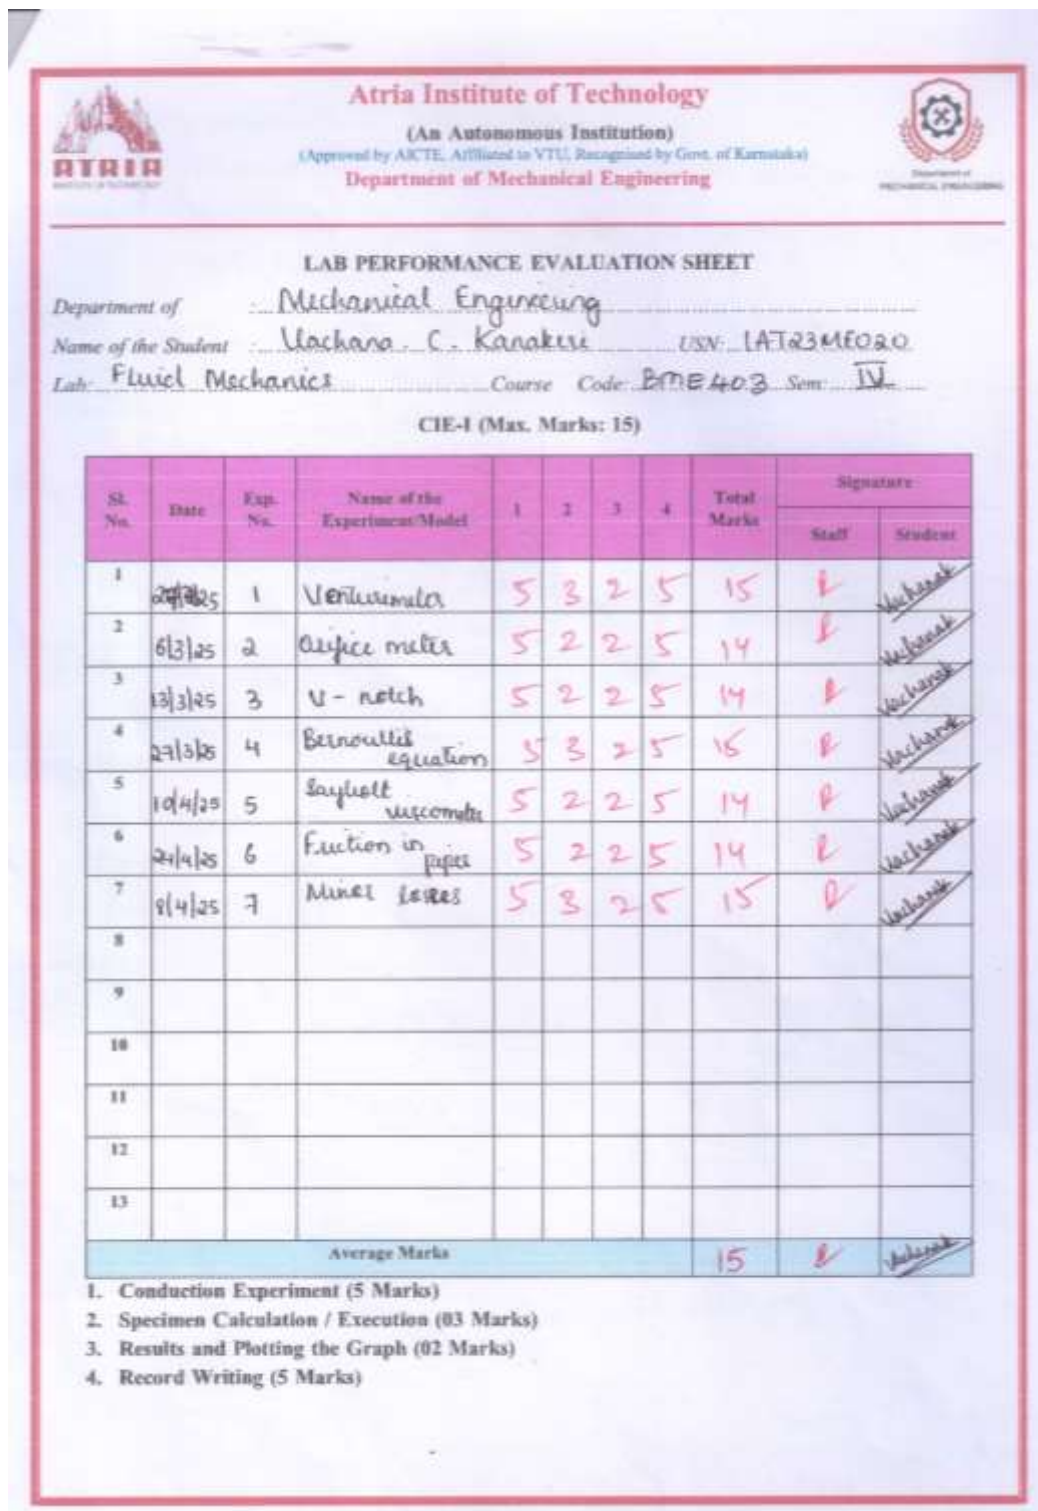 Atria Institute of Technology
(An Autonomous Institution)
(Approved by AICTE, Affiliated to VTU, Recognised by Govt. of Karnataka)
Department of Mechanical Engineering
ATRIA
INSTITUTE OF TECHNOLOGY
Department of
MECHANICAL ENGINEERING
LAB PERFORMANCE EVALUATION SHEET
Department of : Mechanical Engineering
Name of the Student : Vachana. C. Kanakeri USN: 1AT23ME020
Lab: Fluid Mechanics Course Code: BME403 Sem: IV
CIE-I (Max. Marks: 15)
Sl. No. Date Exp. No. Name of the Experiment/Model 1 2 3 4 Total Marks Signature Staff Student
1 1 Venturimeter 5 3 2 5 15 Vachanak
2 6/3/25 2 Orifice meter 5 2 2 5 14 Vachanak
3 13/3/25 3 V - notch 5 2 2 5 14 Vachanak
4 27/3/25 4 Bernoullis equation 5 3 2 5 15 Vachanak
5 10/4/25 5 Saybolt viscometer 5 2 2 5 14 Vachanak
6 24/4/25 6 Friction in pipes 5 2 2 5 14 Vachanak
7 8/4/25 7 Minor losses 5 3 2 5 15 Vachanak
8
9
10
11
12
13
Average Marks 15 Vachanak
1. Conduction Experiment (5 Marks)
2. Specimen Calculation / Execution (03 Marks)
3. Results and Plotting the Graph (02 Marks)
4. Record Writing (5 Marks)